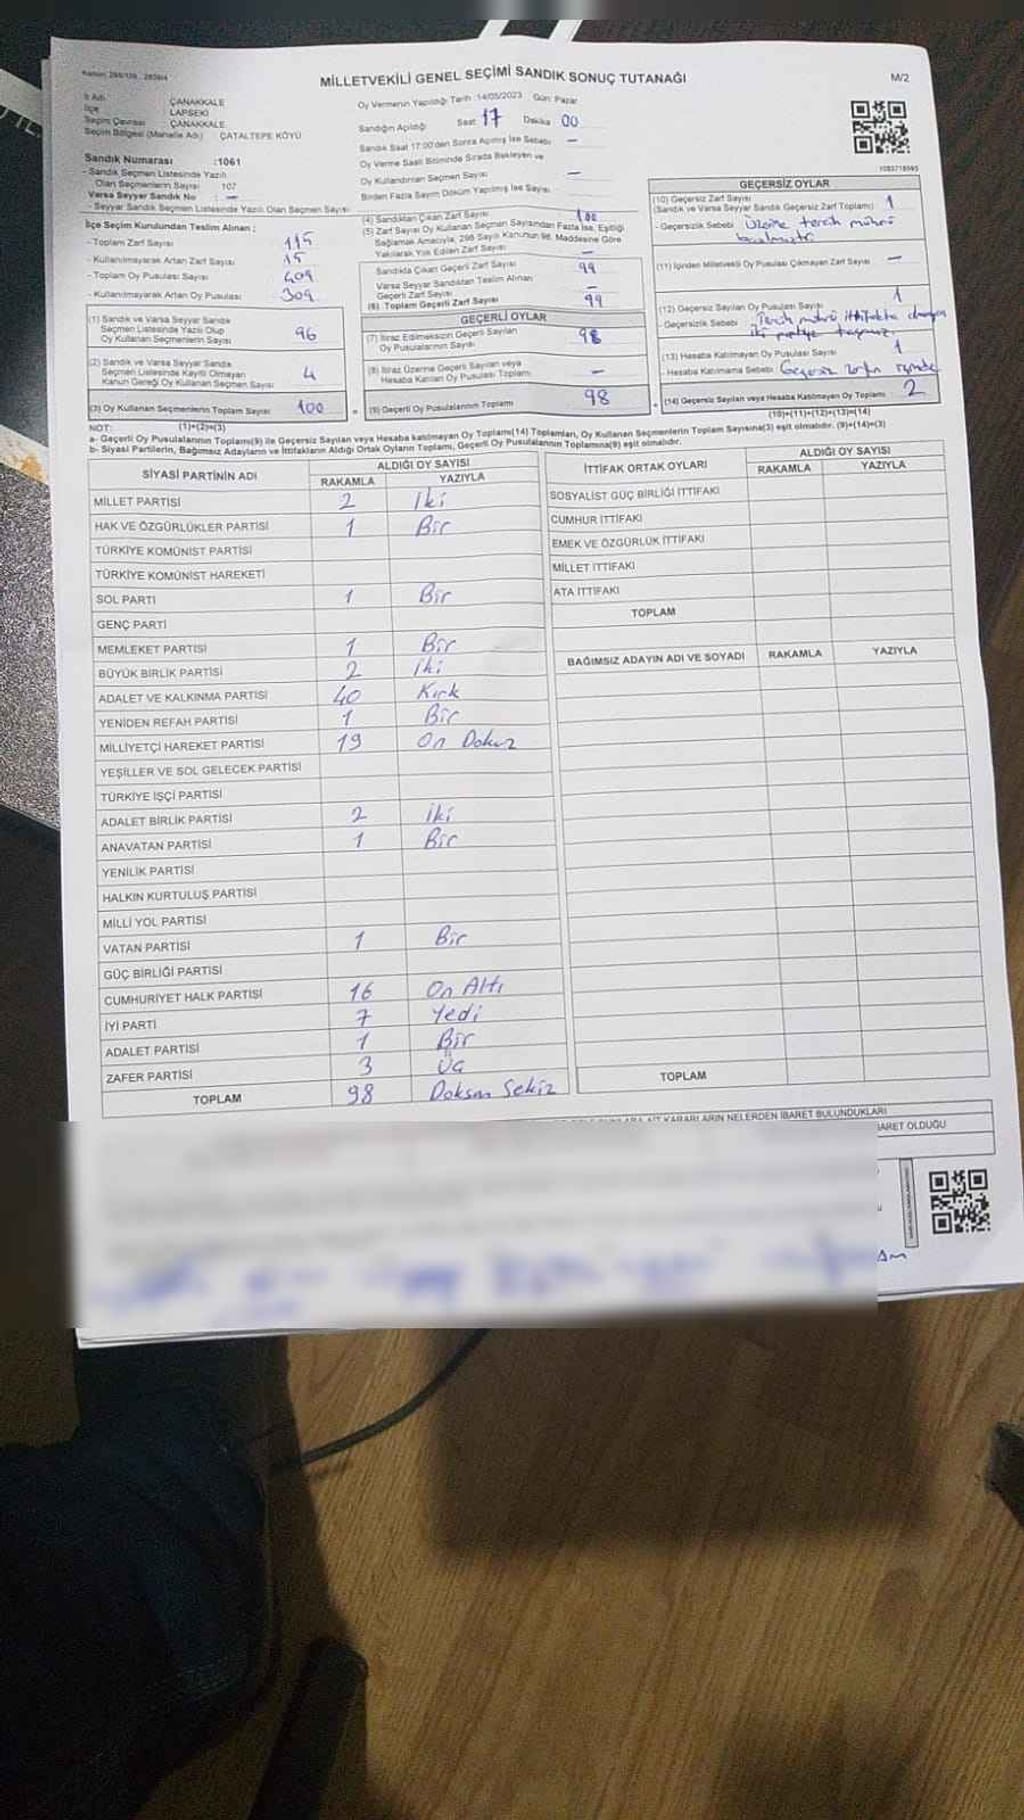 MİLLETVEKİLİ GENEL SEÇİMİ SANDIK SONUÇ TUTANAĞI
M/2
İl Adı : ÇANAKKALE
İlçe : LAPSEKİ
Seçim Çevresi : ÇANAKKALE
Seçim Bölgesi (Mahalle Adı) : ÇATALTEPE KÖYÜ
Oy Vermenin Yapıldığı Tarih :14/05/2023 Gün: Pazar
Sandığın Açıldığı Saat 17 Dakika 00
Sandık Saat 17:00'den Sonra Açılmış İse Sebebi –
Oy Verme Saati Bitiminde Sırada Bekleyen ve
Oy Kullandırılan Seçmen Sayısı –
Birden Fazla Sayım Döküm Yapılmış İse Sayısı
Sandık Numarası :1061
- Sandık Seçmen Listesinde Yazılı
Olan Seçmenlerin Sayısı 107
Varsa Seyyar Sandık No : –
- Seyyar Sandık Seçmen Listesinde Yazılı Olan Seçmen Sayısı
İlçe Seçim Kurulundan Teslim Alınan :
- Toplam Zarf Sayısı 115
- Kullanılmayarak Artan Zarf Sayısı 15
- Toplam Oy Pusulası Sayısı 409
- Kullanılmayarak Artan Oy Pusulası 309
(1) Sandık ve Varsa Seyyar Sandık
Seçmen Listesinde Yazılı Olup
Oy Kullanan Seçmenlerin Sayısı 96
(2) Sandık ve Varsa Seyyar Sandık
Seçmen Listesinde Kayıtlı Olmayan
Kanun Gereği Oy Kullanan Seçmen Sayısı 4
(3) Oy Kullanan Seçmenlerin Toplam Sayısı 100
(1)+(2)=(3)
(4) Sandıktan Çıkan Zarf Sayısı 100
(5) Zarf Sayısı Oy Kullanan Seçmen Sayısından Fazla İse, Eşitliği
Sağlamak Amacıyla, 298 Sayılı Kanunun 98. Maddesine Göre
Yakılarak Yok Edilen Zarf Sayısı –
Sandıkta Çıkan Geçerli Zarf Sayısı 99
Varsa Seyyar Sandıktan Teslim Alınan
Geçerli Zarf Sayısı –
(6) Toplam Geçerli Zarf Sayısı 99
GEÇERLİ OYLAR
(7) İtiraz Edilmeksizin Geçerli Sayılan
Oy Pusulalarının Sayısı 98
(8) İtiraz Üzerine Geçerli Sayılan veya
Hesaba Katılan Oy Pusulası Toplamı –
= (9) Geçerli Oy Pusulalarının Toplamı 98
GEÇERSİZ OYLAR
(10) Geçersiz Zarf Sayısı
(Sandık ve Varsa Seyyar Sandık Geçersiz Zarf Toplamı) 1
- Geçersizlik Sebebi Üzerine tercih mührü
basılmıştır
(11) İçinden Milletvekili Oy Pusulası Çıkmayan Zarf Sayısı –
(12) Geçersiz Sayılan Oy Pusulası Sayısı 1
- Geçersizlik Sebebi Tercih mührü ittifakta olmayan
iki partiye taşmış.
(13) Hesaba Katılmayan Oy Pusulası Sayısı 1
- Hesaba Katılmama Sebebi Geçersiz zarfın içinde
+ (14) Geçersiz Sayılan veya Hesaba Katılmayan Oy Toplamı 2
(10)+(11)+(12)+(13)=(14)
NOT:
a- Geçerli Oy Pusulalarının Toplamı(9) ile Geçersiz Sayılan veya Hesaba katılmayan Oy Toplamı(14) Toplamları, Oy Kullanan Seçmenlerin Toplam Sayısına(3) eşit olmalıdır. (9)+(14)=(3)
b- Siyasi Partilerin, Bağımsız Adayların ve İttifakların Aldığı Ortak Oyların Toplamı, Geçerli Oy Pusulalarının Toplamına(9) eşit olmalıdır.
SİYASİ PARTİNİN ADI ALDIĞI OY SAYISI
RAKAMLA YAZIYLA
MİLLET PARTİSİ 2 İki
HAK VE ÖZGÜRLÜKLER PARTİSİ 1 Bir
TÜRKİYE KOMÜNİST PARTİSİ
TÜRKİYE KOMÜNİST HAREKETİ
SOL PARTİ 1 Bir
GENÇ PARTİ
MEMLEKET PARTİSİ 1 Bir
BÜYÜK BİRLİK PARTİSİ 2 İki
ADALET VE KALKINMA PARTİSİ 40 Kırk
YENİDEN REFAH PARTİSİ 1 Bir
MİLLİYETÇİ HAREKET PARTİSİ 19 On Dokuz
YEŞİLLER VE SOL GELECEK PARTİSİ
TÜRKİYE İŞÇİ PARTİSİ
ADALET BİRLİK PARTİSİ 2 İki
ANAVATAN PARTİSİ 1 Bir
YENİLİK PARTİSİ
HALKIN KURTULUŞ PARTİSİ
MİLLİ YOL PARTİSİ
VATAN PARTİSİ 1 Bir
GÜÇ BİRLİĞİ PARTİSİ
CUMHURİYET HALK PARTİSİ 16 On Altı
İYİ PARTİ 7 Yedi
ADALET PARTİSİ 1 Bir
ZAFER PARTİSİ 3 Üç
TOPLAM 98 Doksan Sekiz
İTTİFAK ORTAK OYLARI ALDIĞI OY SAYISI
RAKAMLA YAZIYLA
SOSYALİST GÜÇ BİRLİĞİ İTTİFAKI
CUMHUR İTTİFAKI
EMEK VE ÖZGÜRLÜK İTTİFAKI
MİLLET İTTİFAKI
ATA İTTİFAKI
TOPLAM
BAĞIMSIZ ADAYIN ADI VE SOYADI RAKAMLA YAZIYLA
TOPLAM
AİT KARARLARIN NELERDEN İBARET BULUNDUKLARI
İBARET OLDUĞU